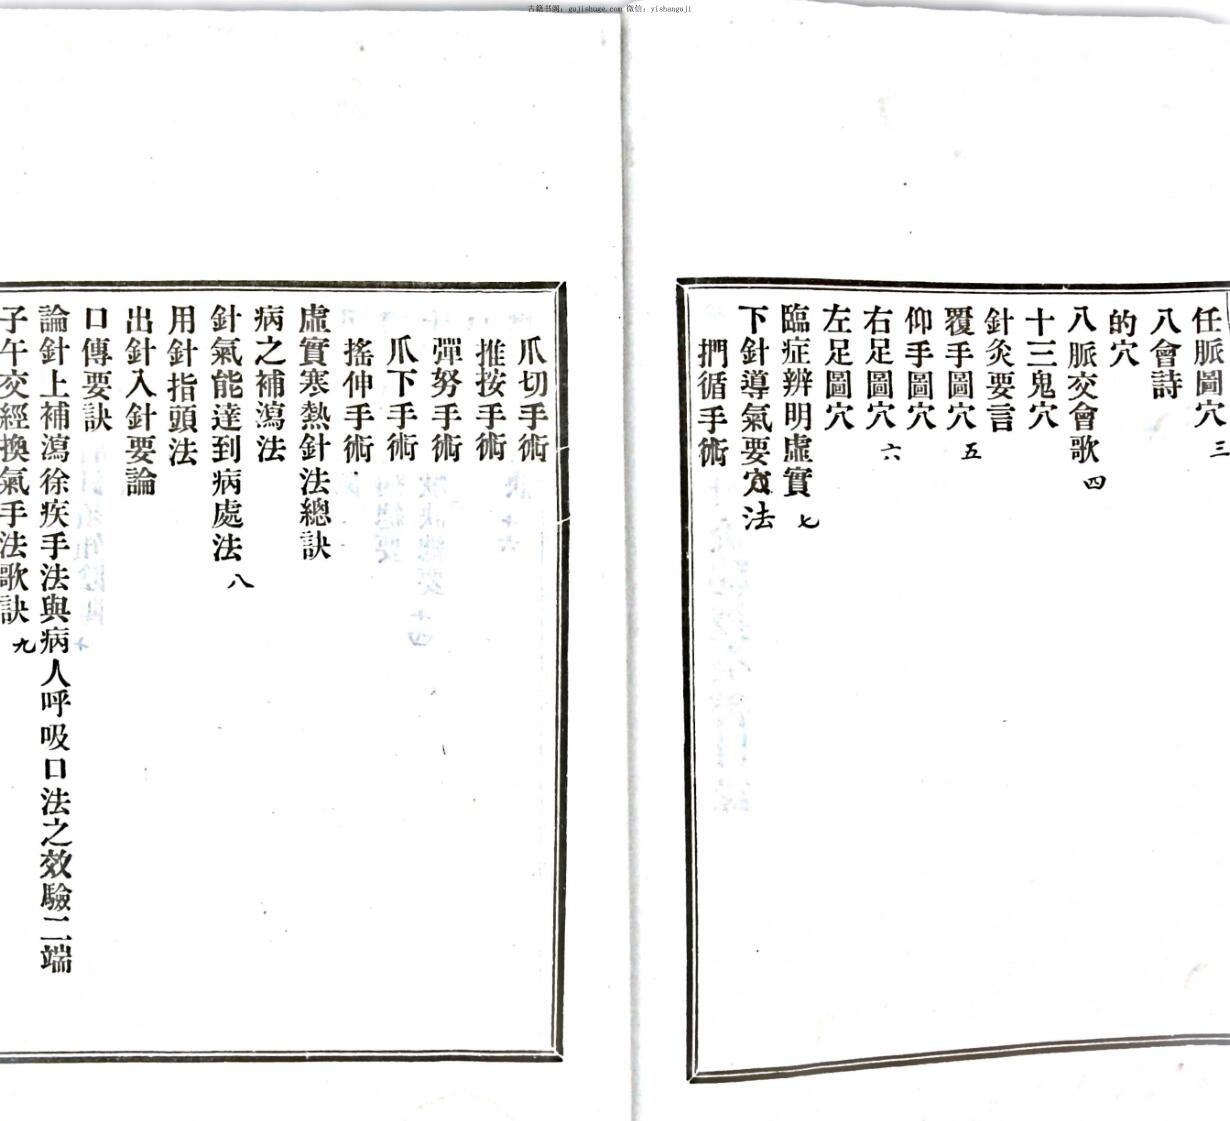 古籍书阁：gujishuge.com 微信：yishanguji
任脈圖穴 三
八會詩
的穴
八脈交會歌 四
十三鬼穴
針灸要言
覆手圖穴 五
仰手圖穴
右足圖穴 六
左足圖穴
臨症辨明虛實 七
下針導氣要法
捫循手術
爪切手術
推按手術
彈努手術
爪下手術
搖伸手術
虛實寒熱針法總訣
病之補瀉法
針氣能達到病處法 八
用針指頭法
出針入針要論
口傳要訣
論針上補瀉徐疾手法與病人呼吸口法之效驗二端
子午交經換氣手法歌訣 九